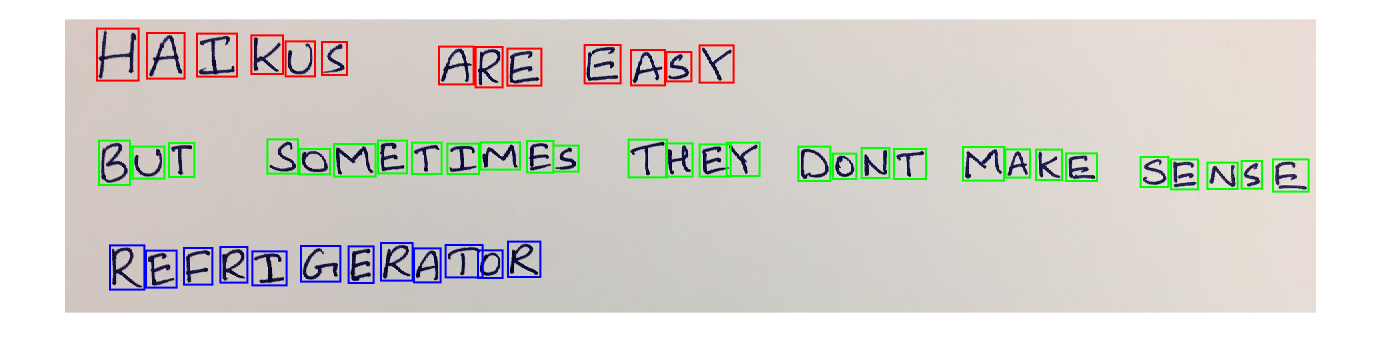 HAIKUS ARE EASY
BUT SOMETIMES THEY DONT MAKE SENSE
REFRIGERATOR